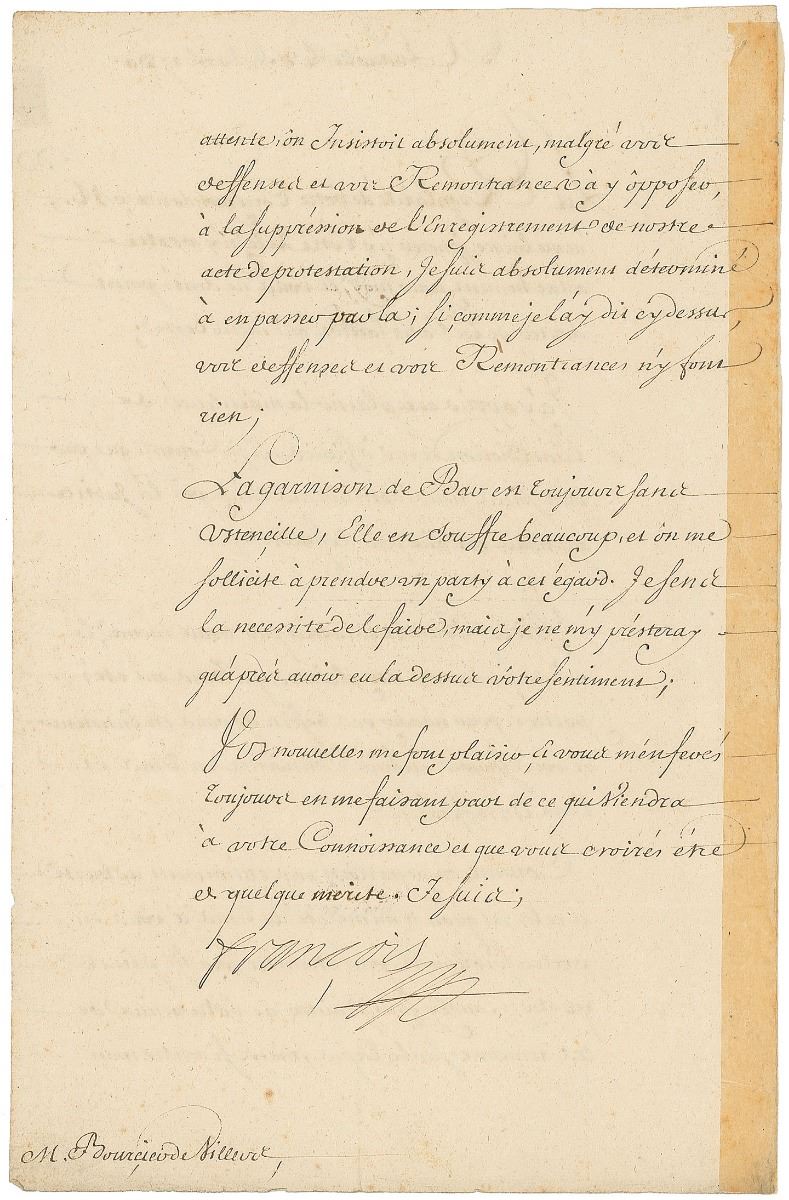 attente, ôn Insistoit absolument, malgré vos
deffenses et vos Remontrances à y ôpposer,
à la suppréssion de l'Enregistrement de nostre
acte de protestation, Je suis absolument déterminé
à en passer par la; si, comme je l'áy dit cy dessus,
vos deffenses et vos Remontrances n'y font
rien;
La garnison de Bar est toujours sans
Vstencille, Elle en souffre beaucoup, et ôn me
sollicite à prendre vn party à cet égard. Je sens
la necessité de le faire, mais je ne m'y présteray
qu'aprés avoir eu la dessus vôtre sentiment;
Vos nouvelles me font plaisir, et vous m'en ferés
toujours en me faisant part de ce qui Viendra
à votre Connoissance et que vous croirés étre
de quelque merite. Je suis;
francois
M. Bourcier de Villers,